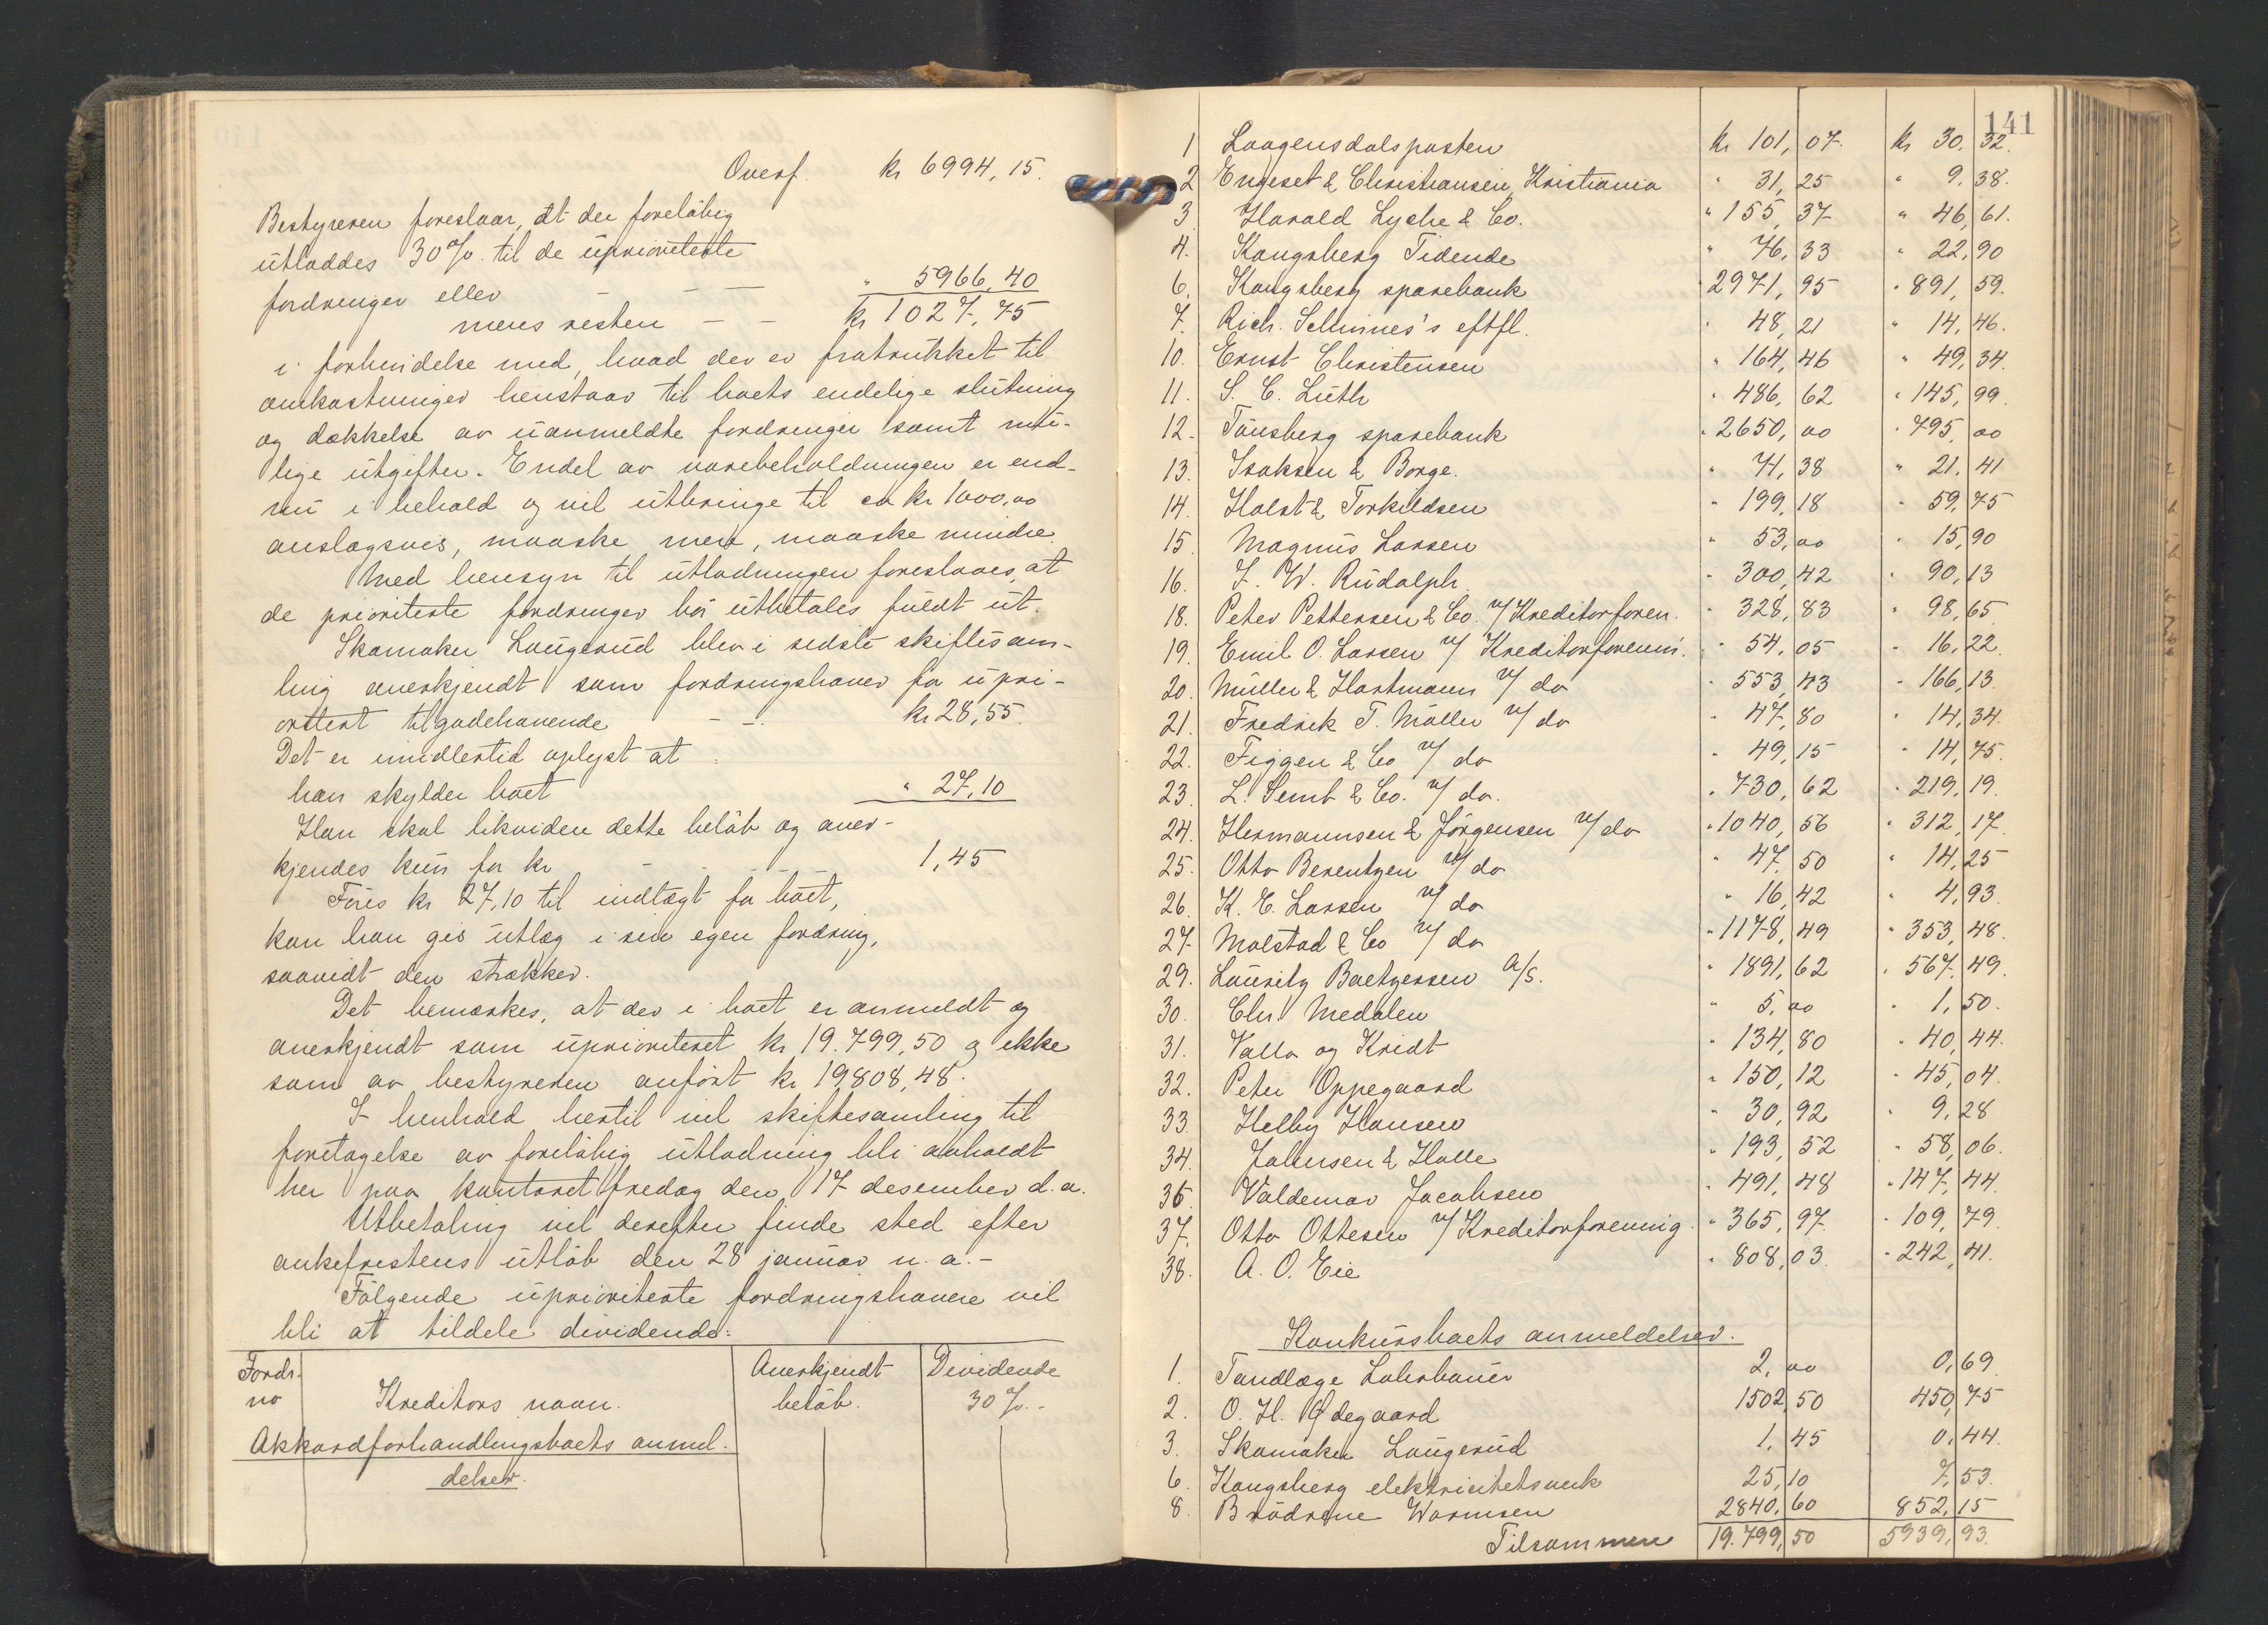 Overf. kr 6994,15.
Bestyreren foreslaar, at der foreløbig
utloddes 30%. til de uprioriterte
fordringer eller — — — " 5966,40
mens resten — — kr 1027,75
i forbindelse med, hvad der er fratrukket til
omkostninger henstaar til boets endelige slutning
og dækkelse av uanmeldte fordringer samt mu-
lige utgifter. Endel av varebeholdningen er end-
nu i behold og vil utbringe til ca kr 1000,00
anslagsvis, maaske mer, maaske mindre.
Med hensyn til utlodningen foreslaaes, at
de prioriterte fordringer bør utbetales fuldt ut.
Skomaker Laugerud blev i sidste skiftesam-
ling anerkjendt som fordringshaver for upri-
oritert tilgodehavende — — kr 28,55.
Det er imidlertid oplyst at
han skylder boet " 27,10
Han skal likvidere dette beløb og aner-
kjendes kun for kr — - - 1,45
Føres kr 27,10 til indtægt for boet,
kan han gis utlæg i sin egen fordring,
saavidt den strækker.
Det bemerkes, at der i boet er anmeldt og
anerkjendt som uprioriteret kr. 19.799,50 og ikke
som av bestyreren anført kr. 19808,48.
I henhold hertil vil skiftesamling til
foretagelse av foreløbig utlodning bli avholdt
her paa kontoret fredag den 17 desember d.a.
Utbetaling vil derefter finde sted efter
ankefristens utløb den 28 januar n.a.-
Følgende uprioriterte fordringshavere vil
bli at tildele dividende:
Fordr. no Kreditors navn. Anerkjendt beløb. Dividende 30%.-
Akkordforhandlingsboets anmel-
delser.
141
1 Laagendalsposten kr 101,07. kr 30,32.
2 Engeset & Christiansen, Kristiania " 31,25 " 9,38.
3 Harald Lyche & Co. " 155,37 " 46,61.
4. Kongsberg Tidende " 76,33 " 22,90
6. Kongsberg sparebank " 2971,95 " 891,59.
7. Rich. Schinnes's eftfl. " 48,21 " 14,46.
10. Ernst Christensen " 164,46 " 49,34.
11. S. C. Luth " 486,62 " 145,99.
12. Tønsberg sparebank " 2650,00 " 795,00
13. Isaksen & Borge. " 71,38 " 21,41
14. Holst & Torkildsen " 199,18 " 59,75
15 Magnus Larsen " 53,00 " 15,90
16. F. W. Rudolph. " 300,42 " 90,13
18. Peter Pettersen & Co. v/ Kreditorforen. " 328,83 " 98,65
19. Emil O. Larsen v/ Kreditorforenin. " 54,05 " 16,22.
20. Müller & Hartmann v/ do " 553,43 " 166,13.
21. Fredrik T. Møller v/ do " 47,80 " 14,34.
22. Figgen & Co v/ do " 49,15 " 14,75.
23. L. Semb & Co. v/ do. " 730,62 " 219,19.
24. Hermannsen & Jørgensen v/ do " 1040,56 " 312,17.
25. Otto Berentzen v/ do " 47,50 " 14,25
26. K. E. Larsen v/ do " 16,42 " 4,93.
27. Molstad & Co v/ do " 1178,49 " 353,48.
29. Lauritz Baetzersen A/S. " 1891,62 " 567,49.
30. Chr. Medalen " 5,00 " 1,50.
31. Valla og Kridt " 134,80 " 40,44.
32. Peter Oppegaard " 150,12 " 45,04.
33. Helby Hansen " 30,92 " 9,28
34. Johnsen & Halle " 193,52 " 58,06.
36. Valdemar Jacobsen " 491,48 " 147,44.
37. Otto Ottesen v/ Kreditorforening " 365,97. " 109,79.
38. A. O. Eie " 808,03. " 242,41.
Konkursboets anmeldelser.
1. Tandlæge Lohrbauer 2,00 0,69
2. O. H. Ødegaard 1502,50 450,75
3. Skomaker Laugerud 1,45 0,44.
6. Kongsberg elektricitetsverk 25,10 7,53.
8. Brødrene Warmsen 2840,60 852,15
Tilsammen 19.799,50 5939,93.